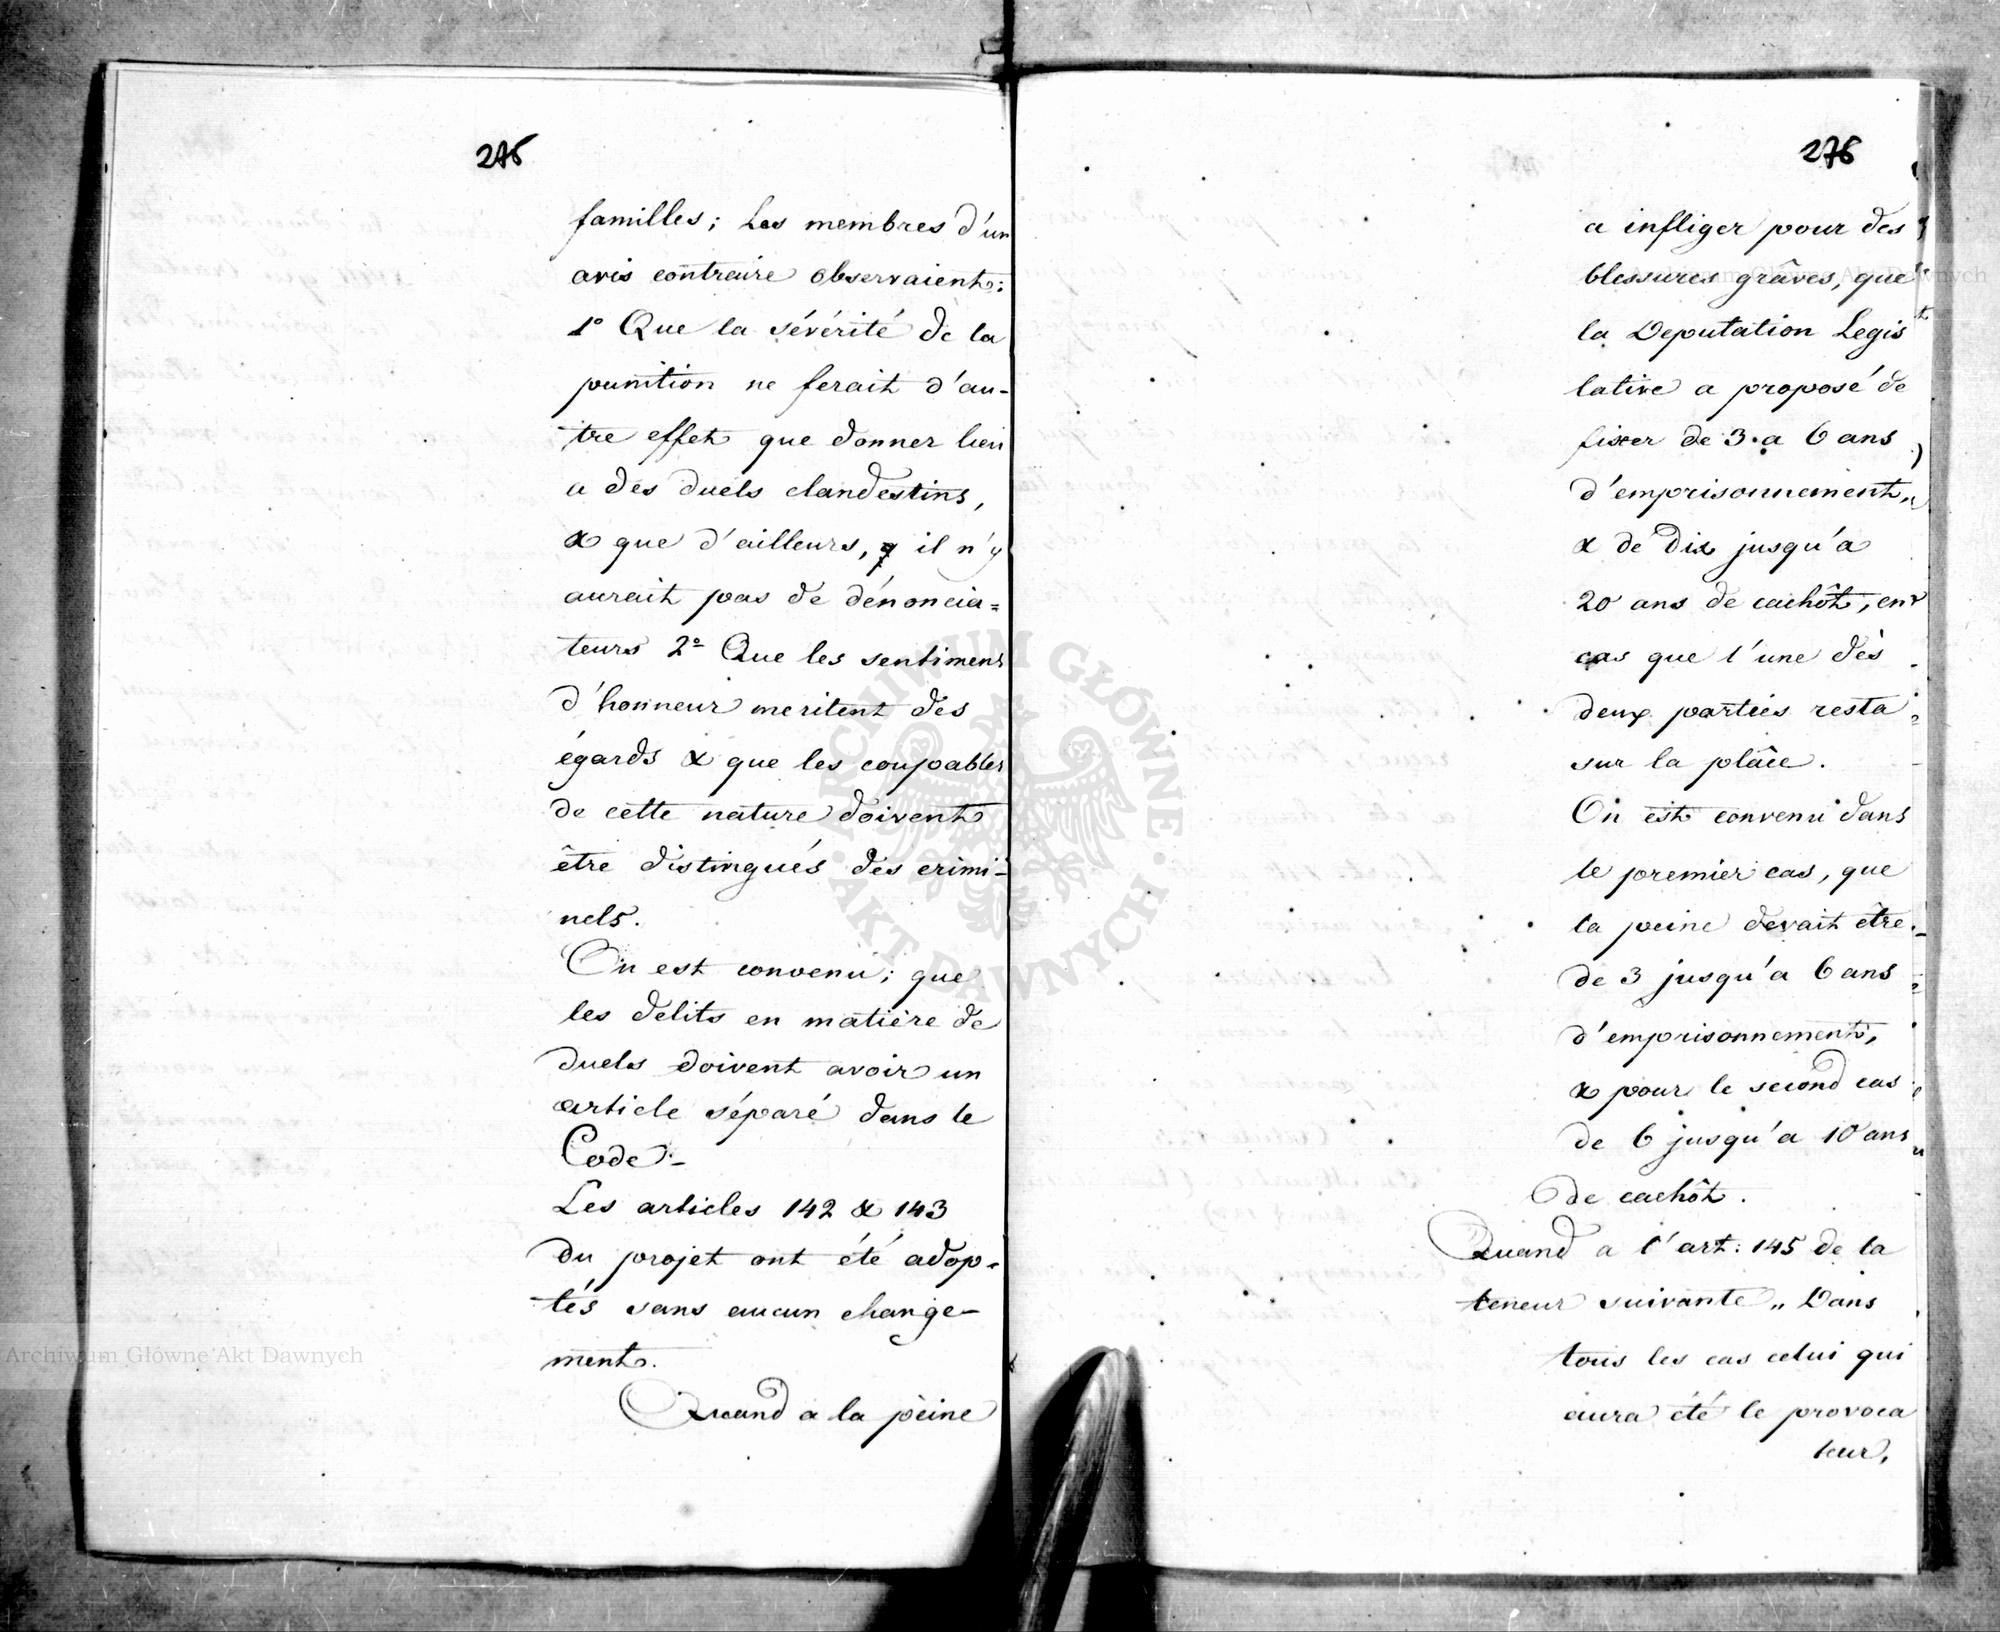 275
familles; Les membres d'un
avis contraire observaient:
1º Que la sévérité de la
punition ne ferait d'au-
tre effet que donner lieu
a des duels clandestins,
& que d'ailleurs, il n'y
aurait pas de dénoncia=
teurs 2º Que les sentimens
d'honneur meritent des
égards & que les coupables
de cette nature doivent
être distingués des crimi-
nels.
On est convenu; que
les delits en matière de
duels doivent avoir un
article séparé dans le
Code.-
Les articles 142 & 143
du projet ont été adop-
tés sans aucun change-
ment.
Quand a la peine
276
a infliger pour des
blessures grâves, que
la Deputation Legis
lative a proposé de
fixer de 3 a 6 ans
d'emprisonnement,
& de dix jusqu'a
20 ans de cachôt, en
cas que l'une des
deux parties resta
sur la plâce.
On est convenu dans
le premier cas, que
la peine devait être
de 3 jusqu'a 6 ans
d'emprisonnement,
& pour le second cas
de 6 jusqu'a 10 ans
de cachôt.
Quand a l'art: 145 de la
teneur suivante „ Dans
tous les cas celui qui
aura été le provoca
teur,
ARCHIWUM GŁÓWNE AKT DAWNYCH
Archiwum Główne Akt Dawnych
Archiwum Główne Akt Dawnych